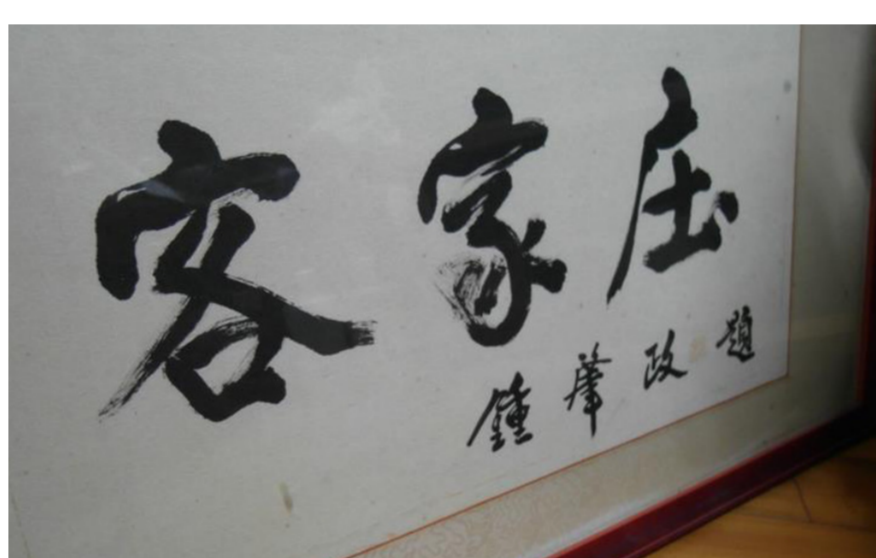 客家庄
鍾肇政題